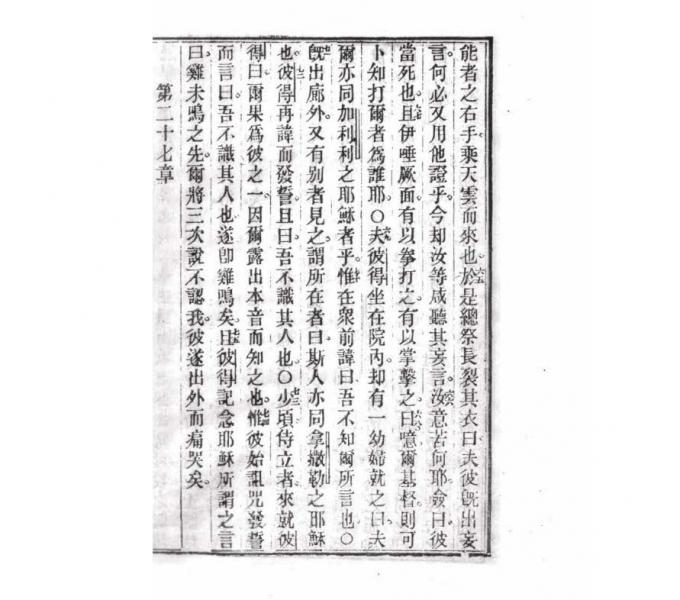 能者之右手乘天雲而來也。於是總祭長裂其衣曰夫彼既出妄
言何必又用他證乎。今却汝等咸聽其妄言。汝意若何耶。僉曰彼
當死也。且伊唾厥面有以拳打之有以掌擊之曰噫爾基督則可
卜知打爾者為誰耶○夫彼得坐在院內却有一幼婦就之曰夫
爾亦同加利利之耶穌者乎。惟在衆前諱曰吾不知爾所言也○
既出廊外又有別者見之謂所在者曰斯人亦同拿撒勒之耶穌
也彼得再諱而發誓且曰吾不識其人也○少頃侍立者來就彼
得曰爾果為彼之一因爾露出本音而知之也惟彼始詛咒發誓
而言曰吾不識其人也遂卽雞鳴矣且彼得記念耶穌所謂之言
曰雞未鳴之先爾將三次說不認我彼遂出外而痛哭矣。
第二十七章